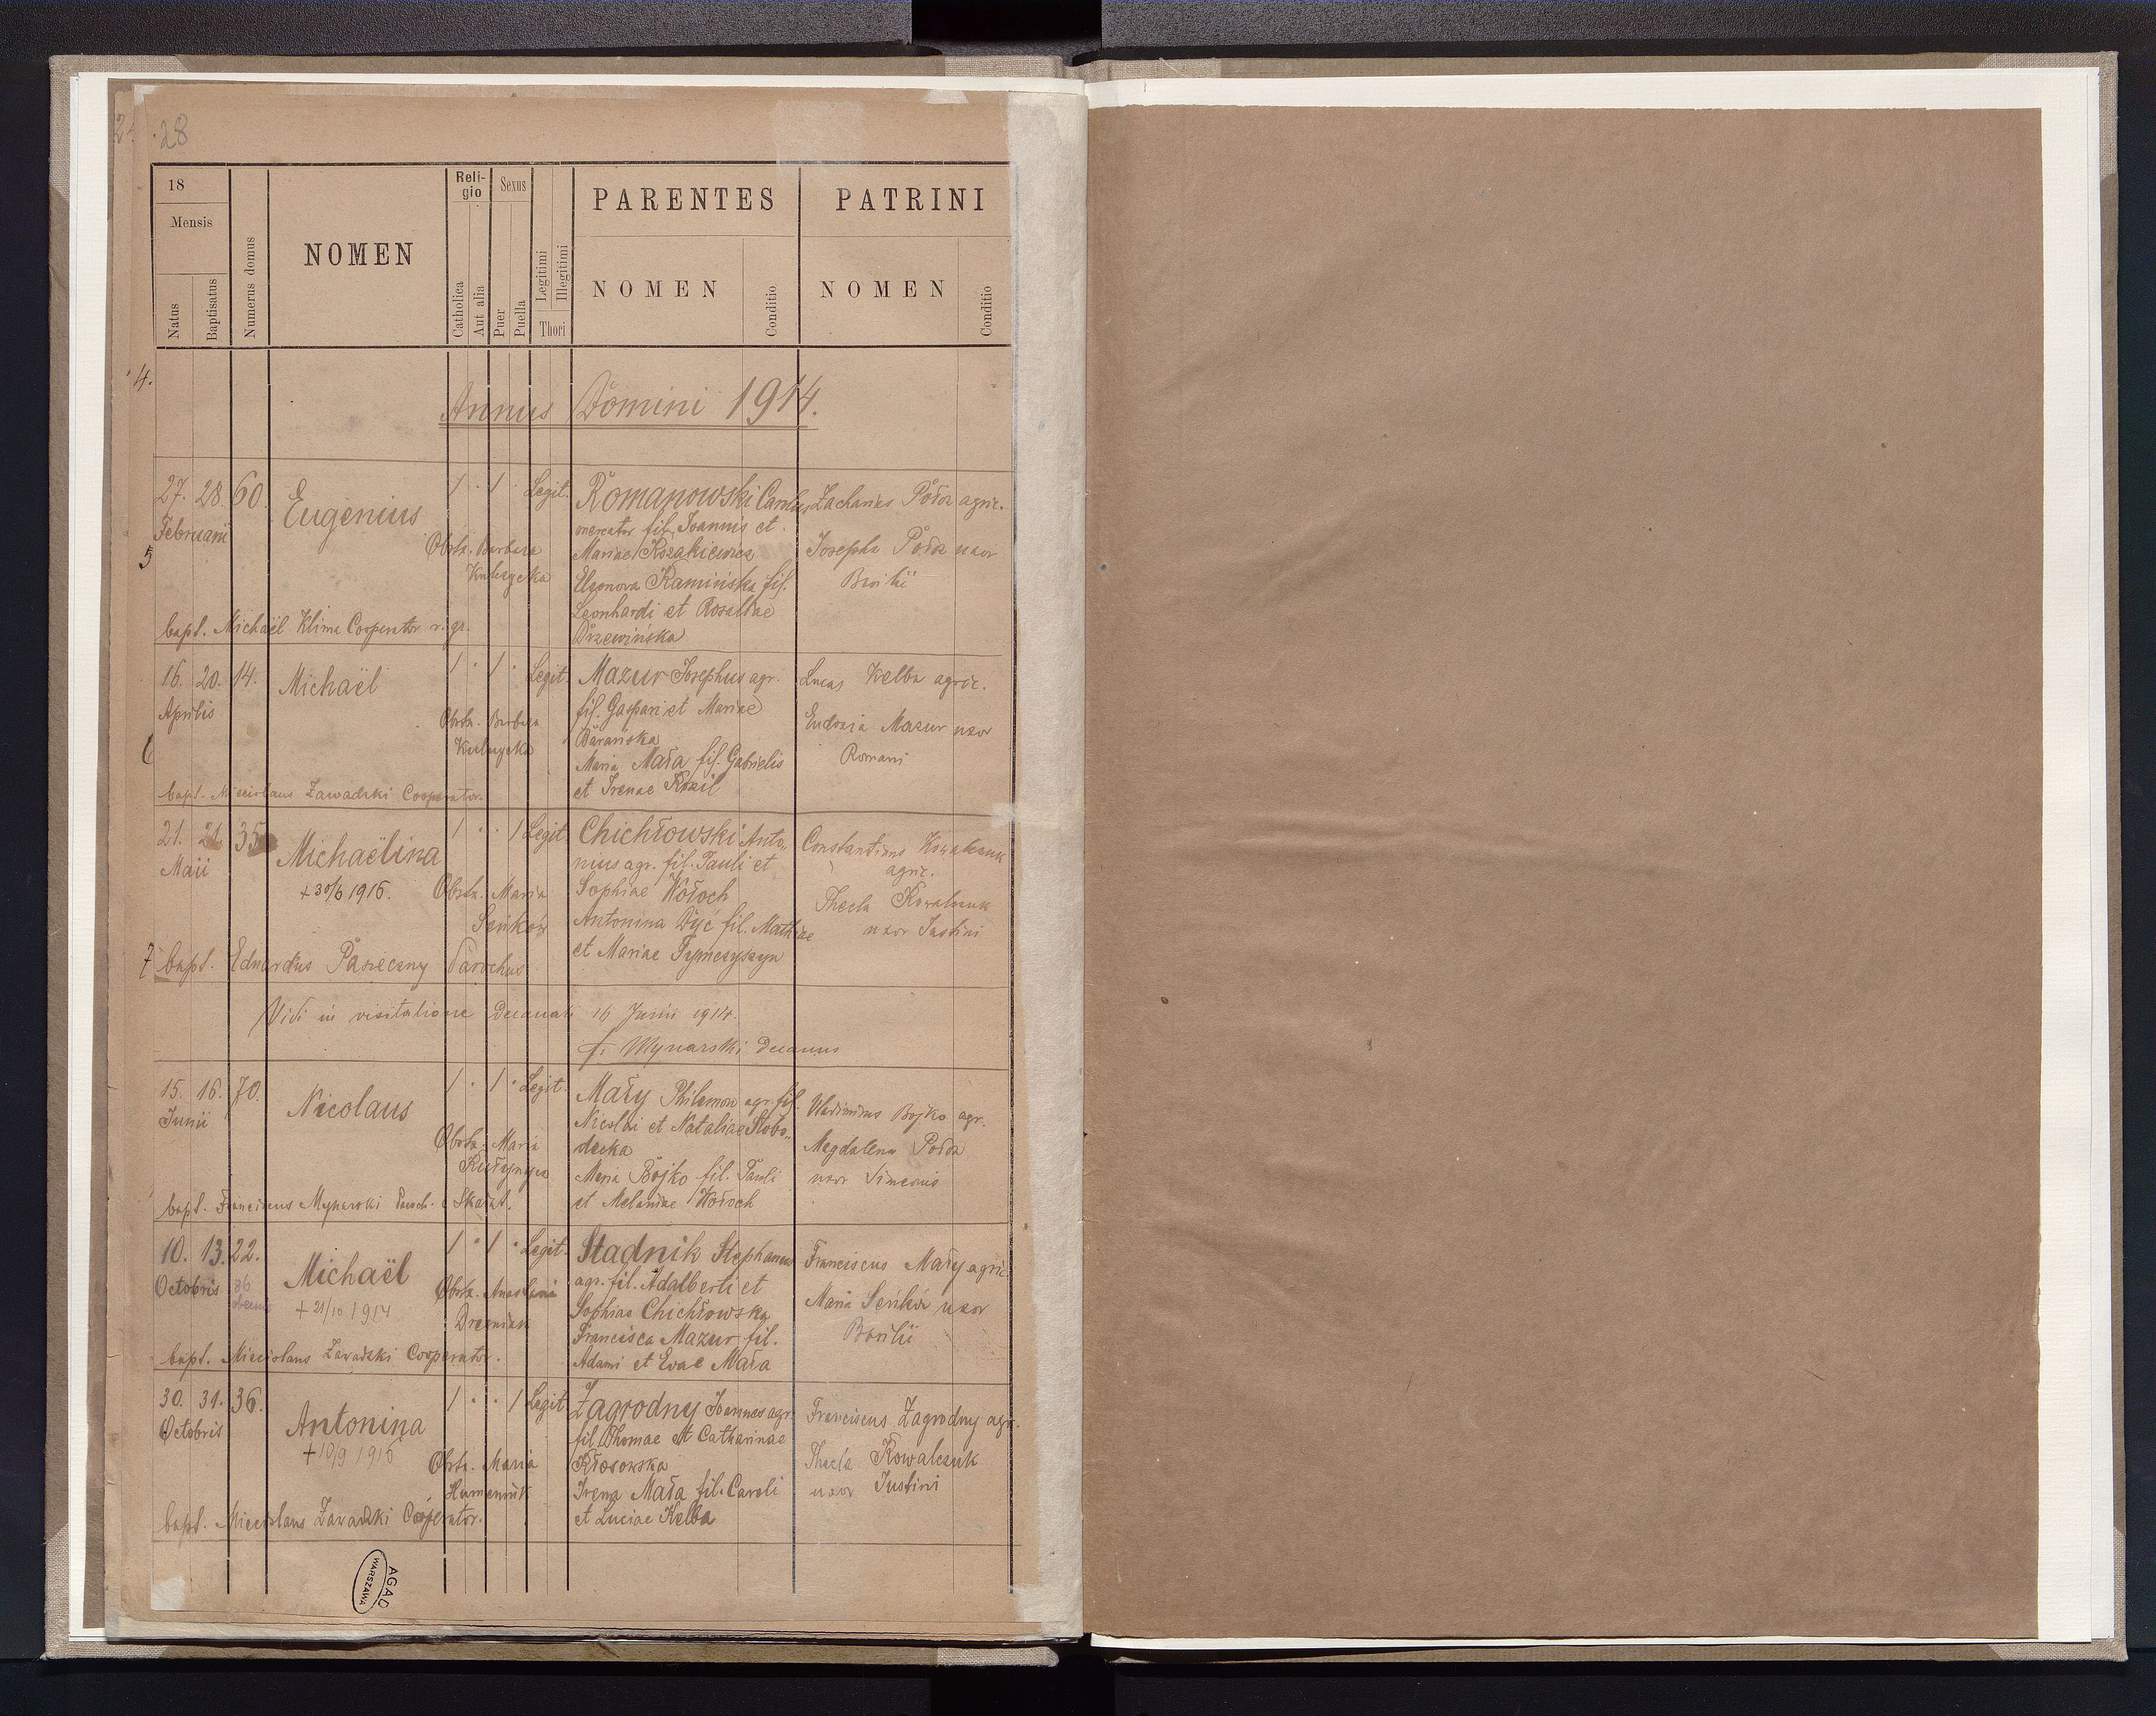 28
18
Mensis
Natus
Baptisatus
Numerus domus
NOMEN
Reli-
gio
Catholica
Aut alia
Sexus
Puer
Puella
Legitimi
Illegitimi
Thori
PARENTES
NOMEN
Conditio
PATRINI
NOMEN
Conditio
4.
Annus Domini 1914.
27. 28. 60. Eugenius 1 · 1 · Legit.
Februarii
Obstr. Barbara
Kulczycka
Romanowski Carolus
mercator fil. Joannis et
Mariae Kozakiewicz
Eleonora Kamińska fil.
Leonhardi et Rosaliae
Drzewińska
Zacharias Półdz agric.
Josepha uxor
Basilii
5
bapt. Michaël Klima Cooperator r. gr.
16. 20. 14. Michaël 1 · 1 · Legit.
Aprilis
Obstr. Barbara
Kulczycka
Mazur Josephus agr.
fil. Gaspari et Mariae
Barańska
Maria Mała fil. Gabrielis
et Irenae Kozil
Lucas Kelba agric.
Eudoxia Mazur uxor
Romani
6
bapt. Miecislaus Zawadzki Cooperator.
21. 21. 35 Michaëlina 1 · · 1 Legit.
Maii
+ 30/6 1916.
Obstr. Maria
Seńków
Chichłowski Anto„
nius agr. fil. Pauli et
Sophiae Wołoch
Antonina Dyć fil. Mathiae
et Mariae Tymczyszyn
Constantinus Kowalczuk
agric.
Thecla Kowalczuk
uxor Justini
7
bapt. Eduardus Pasieczny Parochus
Vidi in visitatione Decanali 16 Junii 1914.
f. Mynarski Decanus
15. 16. 70. Nicolaus 1 · 1 · Legit.
Junii
Obstr. Maria
Mały Philemon agr. fil.
Nicolai et Nataliae Słobo„
decka
Maria Bojko fil. Pauli
et Melaniae Wołoch
Vladimirus Bojko agr.
Magdalena
uxor Simeonis
bapt. Franciscus Mynarski Paroch. Skałat.
10. 13. 22. Michaël 1 · 1 · Legit.
Octobris
86
obecnie
+ 21/10 1914
Obstr. Anastasia
Dreźniak
Stadnik Stephanus
agr. fil. Adalberti et
Sophiae Chichłowska
Francisca Mazur fil.
Adami et Evae Mała
Franciscus Mały agric.
Maria Seńków uxor
Basilii
bapt. Miecislaus Zawadzki Cooperator.
30. 31. 36. Antonina 1 · · 1 Legit.
Octobris
+ 10/9 1915
Obstr. Maria
Humeniuk
Zagrodny Joannes agr.
fil. Thomae et Catharinae
Kłosowska
Irena Mała fil. Caroli
et Luciae Kelba
Franciscus Zagrodny agr.
Thecla Kowalczuk
uxor Justini
bapt. Miecislaus Zawadzki Cooperator.
AGAD
WARSZAWA